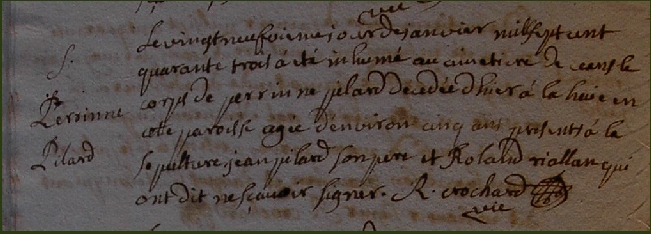 vic
S.
Perrinne
Pilard
Le vingt neuffoieme jour de janvier mil sept cent
quarante trois a été inhumé au cimetiere de ceans le
corps de perrinne pilard decedée d'hier à la huie en
cette paroisse agée d'environ cinq ans presents à la
sepulture jean pilard son pere et Roland riallan qui
ont dit ne sçavoir signer. R. crochard
vic